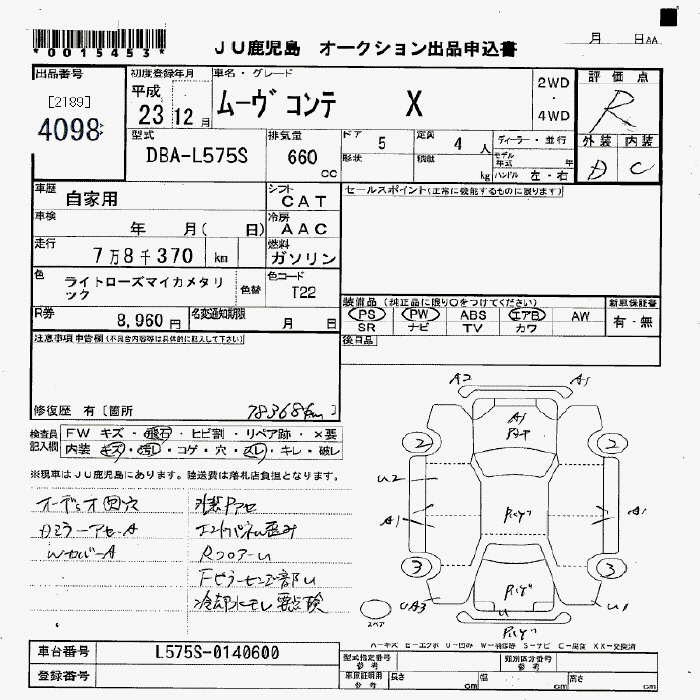 *0015453*
JU鹿児島 オークション出品申込書
月 日AA
出品番号
[2189]
4098
初度登録年月
平成
23 12月
車名・グレード
ムーヴ コンテ X
2WD
・
4WD
評価点
R
外装 内装
D C
型式
DBA-L575S
排気量
660
cc
ドア 5
定員 4 人
形状
積載 kg
ディーラー・並行
モデル年式 年
ハンドル 左・右
車歴 自家用
シフト CAT
セールスポイント(正常に機能するものに限ります)
車検 年 月( 日)
冷房 AAC
走行 7万8千370 km
燃料 ガソリン
色 ライトローズマイカメタリック
色替
色コード T22
装備品(純正品に限り○をつけてください)
新車保証書
PS PW ABS エアB AW
SR ナビ TV カワ
有・無
R券 8,960円
名変通知期限 月 日
後日品
注意事項申告欄(不具合内容等は具体的に記入して下さい)
修復歴 有〔箇所 78368km〕
検査員記入欄
FW キズ・飛石・ヒビ割・リペア跡・×要
内装 キズ・汚レ・コゲ・穴・スレ・キレ・破レ
※現車はJU鹿児島にあります。陸送費は落札店負担となります。
オーディオ 穴
DミラーアセーA
WカバーA
外装Pアセ
エンドパネル歪み
RフロアーU
冷却水モレ 要点検
A2 A1
A1
2 2
U2
A1 A1
3 3
UA3 U U1
スペア
A-キズ E-エクボ U-凹み W-補修跡 S-サビ C-腐食 XX-交換済
車台番号 L575S-0140600
登録番号
型式指定番号 参考
類別区分番号 参考
車庫証明用 参考 長さ cm 幅 cm 高さ cm